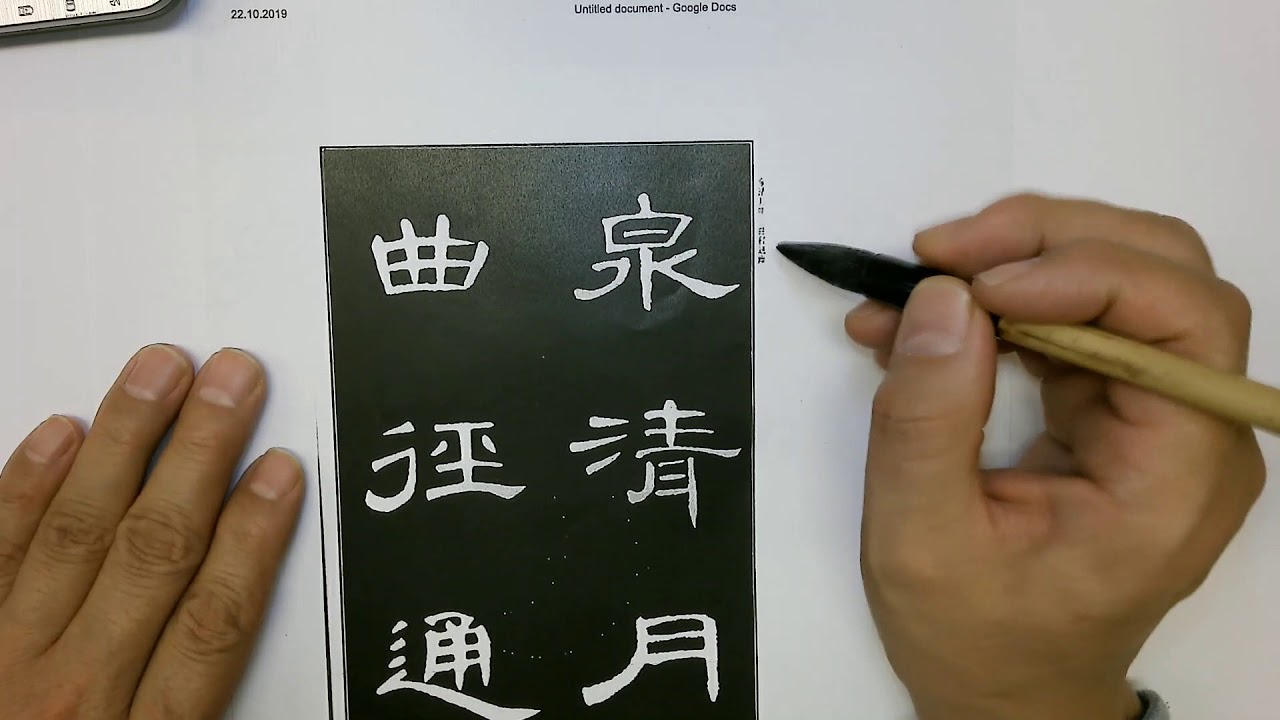 22.10.2019
Untitled document - Google Docs
泉清月
曲徑通